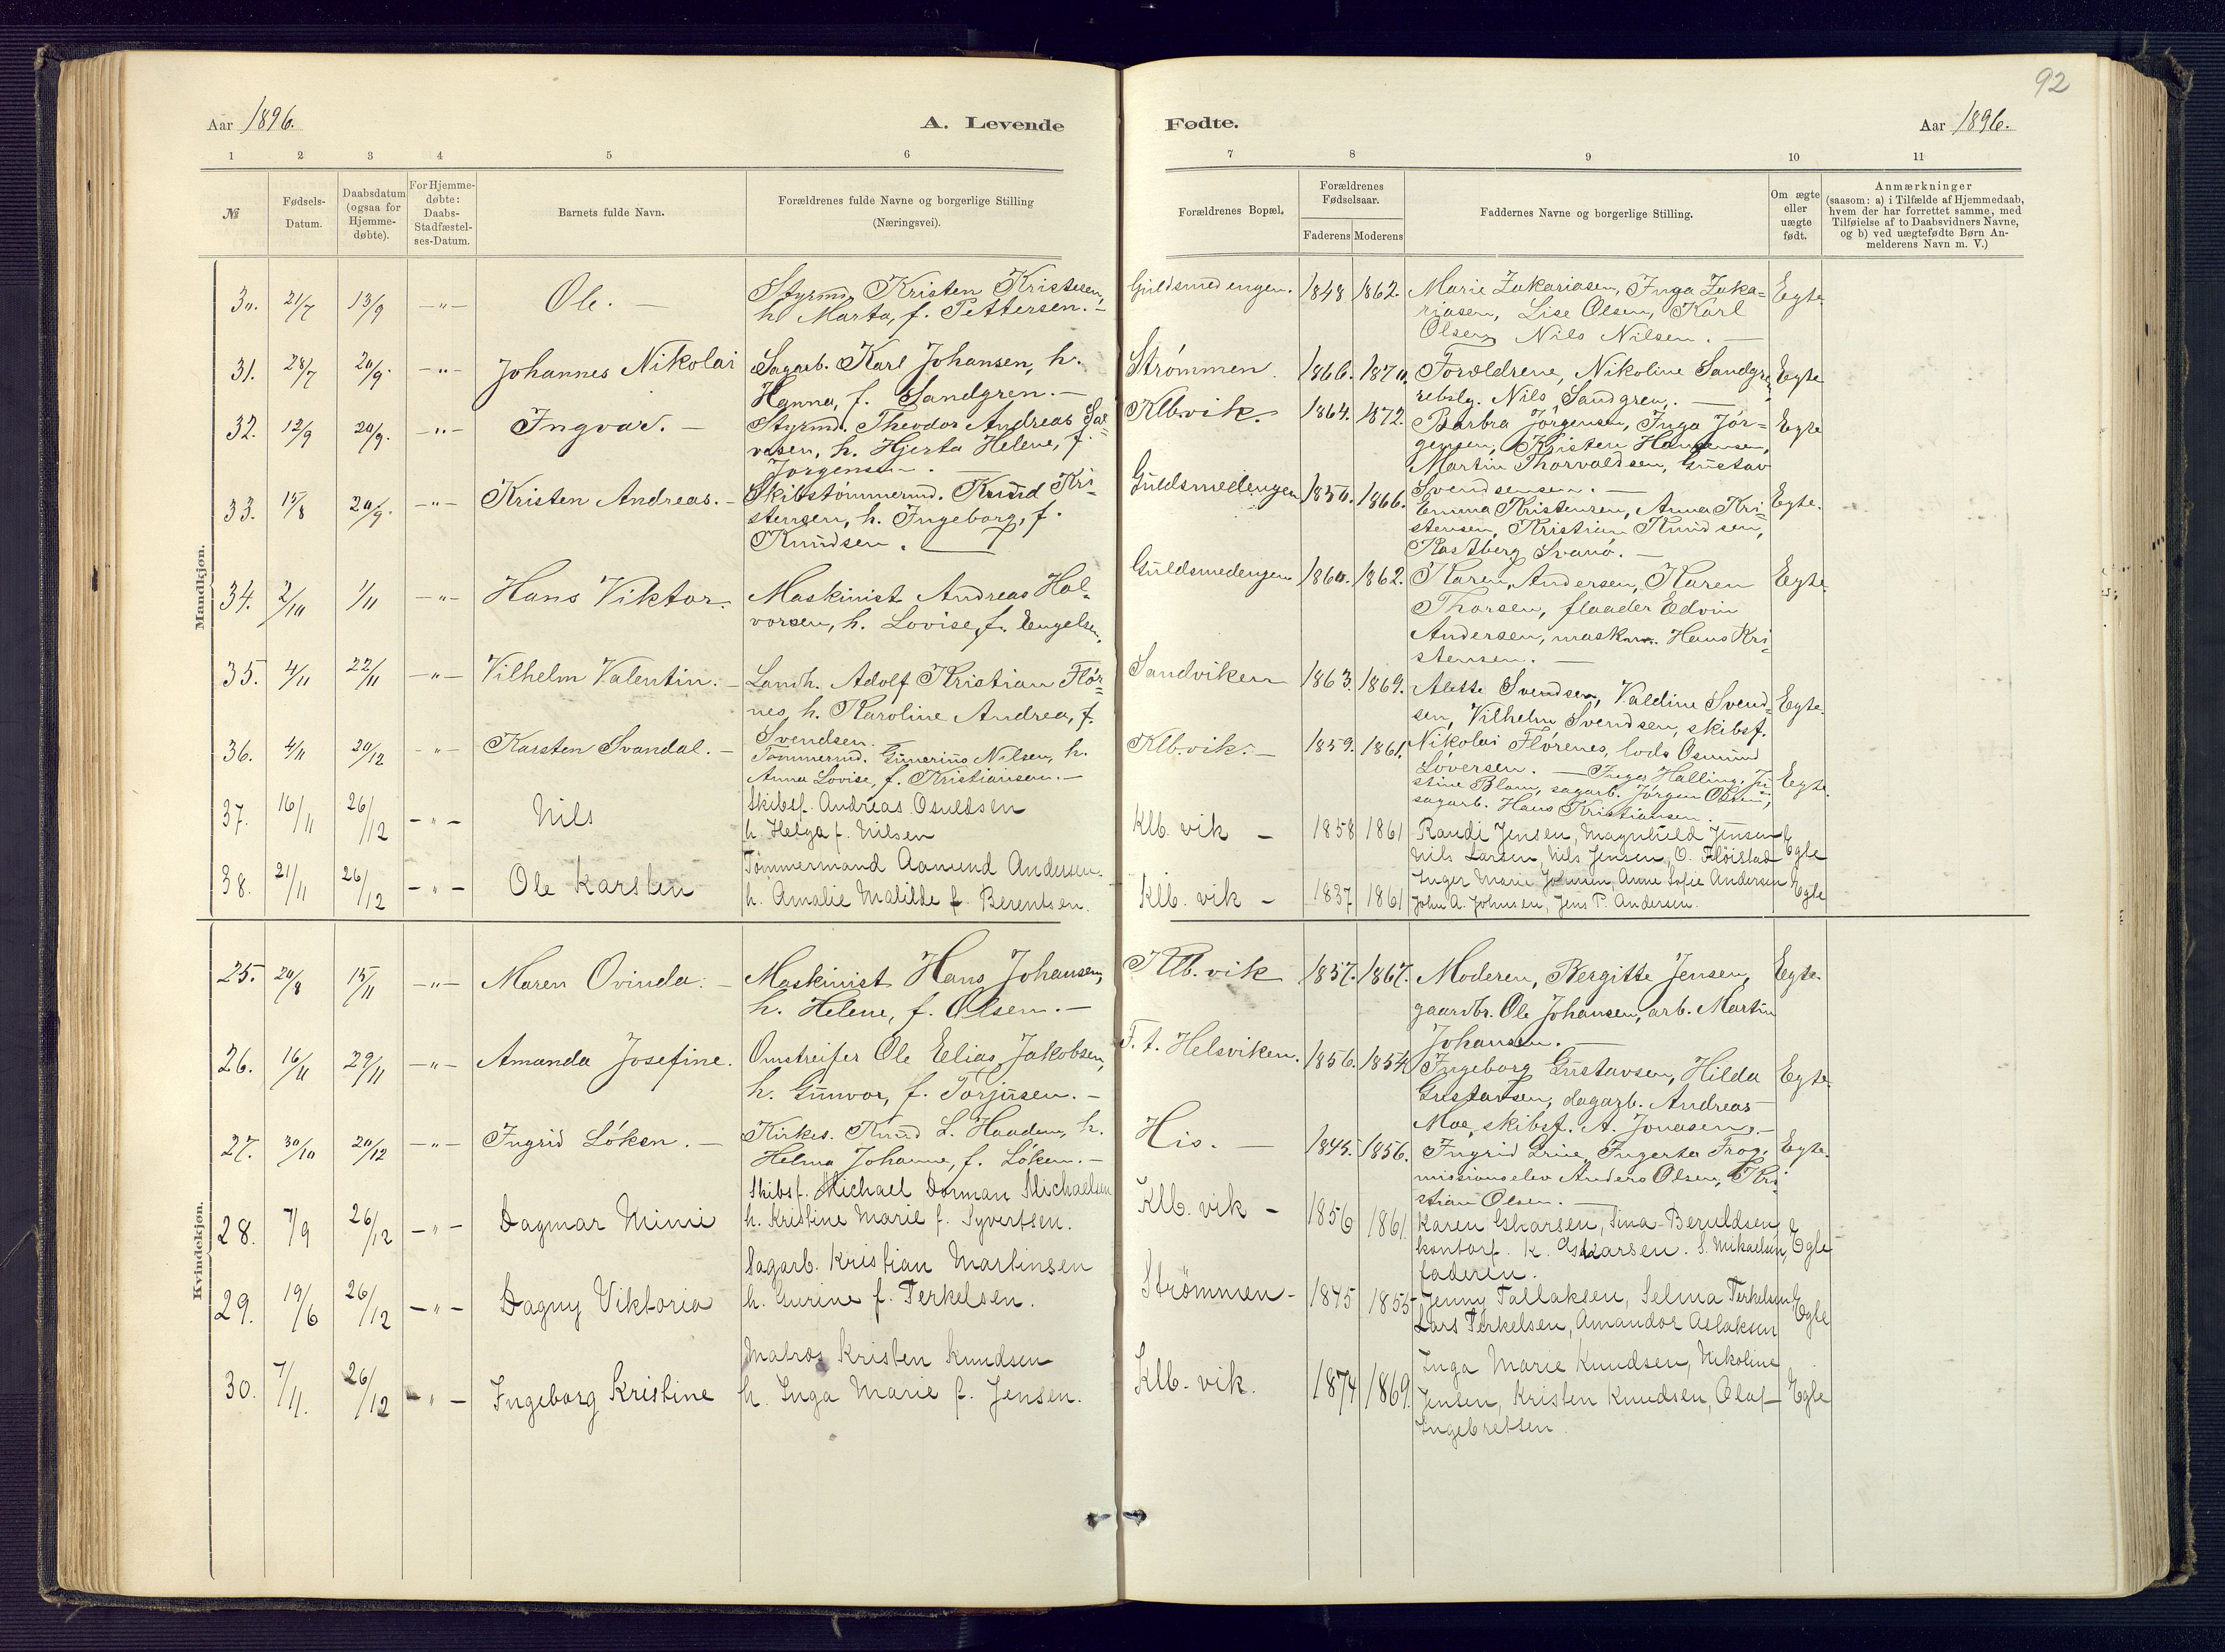 92
Aar 1896.
A. Levende
Fødte.
Aar 1896.
1 2 3 4 5 6
7 8 9 10 11
№
Fødsels-Datum.
Daabsdatum (ogsaa for Hjemme-døbte).
For Hjemme-døbte: Daabs-Stadfæstel-ses-Datum.
Barnets fulde Navn.
Forældrenes fulde Navne og borgerlige Stilling
(Næringsvei).
Forældrenes Bopæl.
Forældrenes Fødselsaar.
Faderens Moderens
Faddernes Navne og borgerlige Stilling.
Om ægte eller uægte født.
Anmærkninger
(saasom: a) i Tilfælde af Hjemmedaab,
hvem der har forrettet samme, med
Tilføielse af to Daabsvidners Navne,
og b) ved uægtefødte Børn An-
melderens Navn m. V.)
Mandkjøn.
30. 21/7 13/9 -"- Ole. - Styrmd. Kristen Kristesen,
h. Marta, f. Pettersen. -
Guldsmedengen. 1848 1862. Marie Zakariasen, Inga Zaka=
riasen, Lise Olsen, Karl
Olsen, Nils Nilsen. -
Egte.
31. 28/7 20/9. -"- Johannes Nikolai Sagarb. Karl Johansen, h.
Hanna, f. Sandgren. -
Strømmen. 1866. 1870. Forældrene, Nikoline Sandgren,
rebslg. Nils Sandgren. -
Egte
32. 12/9 20/9. -"- Ingvar. - Styrmd. Theodor Andreas Sal=
vesen, h. Hjerta Helene, f.
Jørgensen. -
Klb.vik. 1864. 1872. Barbra Jørgensen, Inga Jør=
gensen, Kristen Hansensen,
Martin Thorvaldsen, Gustav
Svendsensen. -
Egte
33. 15/8 20/9. -"- Kristen Andreas. - Skibstømmermd. Knud Kri-
stensen, h. Ingeborg, f.
Knudsen. -
Guldsmedengen 1850. 1866. Emma Kristensen, Anna Kri-
stensen, Kristian Knudsen,
Rastberg Svanø. -
Egte.
34. 2/10 1/11 -"- Hans Viktor. Maskinist Andreas Hal-
vorsen, h. Lovise, f. Engelsen.
Guldsmedengen 1860. 1862. Karen Andersen, Karen
Thorsen, flaader Edvin
Andersen, maskm. Hans Kri-
stensen. -
Egte.
35. 4/11 22/11 -"- Vilhelm Valentin. - Landh. Adolf Kristian Flør=
nes, h. Karoline Andrea, f.
Svendsen.
Sandviken 1863. 1869. Alette Svendsen, Valdine Svend=
sen, Vilhelm Svendsen, skibsf.
Nikolai Flørenes, lods Osmund
Løversen. -
Egte.
36. 4/11 20/12 -"- Karsten Svandal. - Tømmermd. Gunerius Nilsen, h.
Anna Lovise, f. Kristiansen. -
Klb.vik. - 1859. 1861. Inga Halling, Ju
stine Blom, sagarb. Jørgen Olsen,
sagarb. Hans Kristiansen.
Egte.
37. 16/11 26/12 -"- Nils Skibsf. Andreas Osuldsen
h. Helga f. Nilsen
Klb. vik - 1858 1861 Randi Jensen, Magnhild Jensen
Nils Larsen, Nils Jensen, O. Fløistad
Egte
38. 21/11 26/12 -"- Ole Karsten Tømmermand Aanund Andersen.
h. Amalie Matilde f. Berentsen.
Klb. vik - 1837 1861 Inger Marie Johnsen, Anne Sofie Andersen
John A. Johnsen, Jens P. Andersen.
Egte
Kvindekjøn.
25. 20/8 15/11 -"- Maren Ovinda. - Maskinist Hans Johansen,
h. Helene, f. Olsen. -
Klb.vik 1857. 1867. Moderen, Bergitte Jensen,
gaardbr. Ole Johansen, arb. Martin
Johansen. -
Egte.
26. 16/11 29/11 -"- Amanda Josefine. Omstreifer Ole Elias Jakobsen,
h. Gunvor, f. Torjusen. -
F. t. Helsviken. 1856. 1854 Ingeborg Gustavsen, Hilda
Gustavsen, dagarb. Andreas
Moe, skibsf. A. Jonasen. -
Egte.
27. 30/10 20/12 -"- Ingrid Løken. - Kirkes. Knud L. Haaden, h.
Helma Johanne, f. Løken. -
His. - 1845. 1856. Ingrid Irine, Ingerta Frog,
missionselev Anders Olsen, Kri-
stian Olsen. -
Egte.
28. 7/9 26/12 -"- Dagmar Mimi Skibsf. Michael Dorman Michaelsen
h. Kristine Marie f. Syvertsen.
Klb. vik - 1856 1861. Karen Oskarsen, Tina Beruldsen
kontorf. K. Oskarsen. S. Mikaelsen,
faderen.
Egte
29. 19/6 26/12 -"- Dagny Viktoria Sagarb. Kristian Martinsen
h. Gurine f. Terkelsen.
Strømmen - 1845 1855 Jenny Tallaksen, Selma Terkelsen
Lars Terkelsen, Amandor Aslaksen
Egte
30. 7/11. 26/12 -"- Ingeborg Kristine Matros Kristen Knudsen
h. Inga Marie f. Jensen.
Klb. vik. 1874 1869. Inga Marie Knudsen, Nikoline
Jensen, Kristen Knudsen, Olaf
Ingebretsen.
Egte